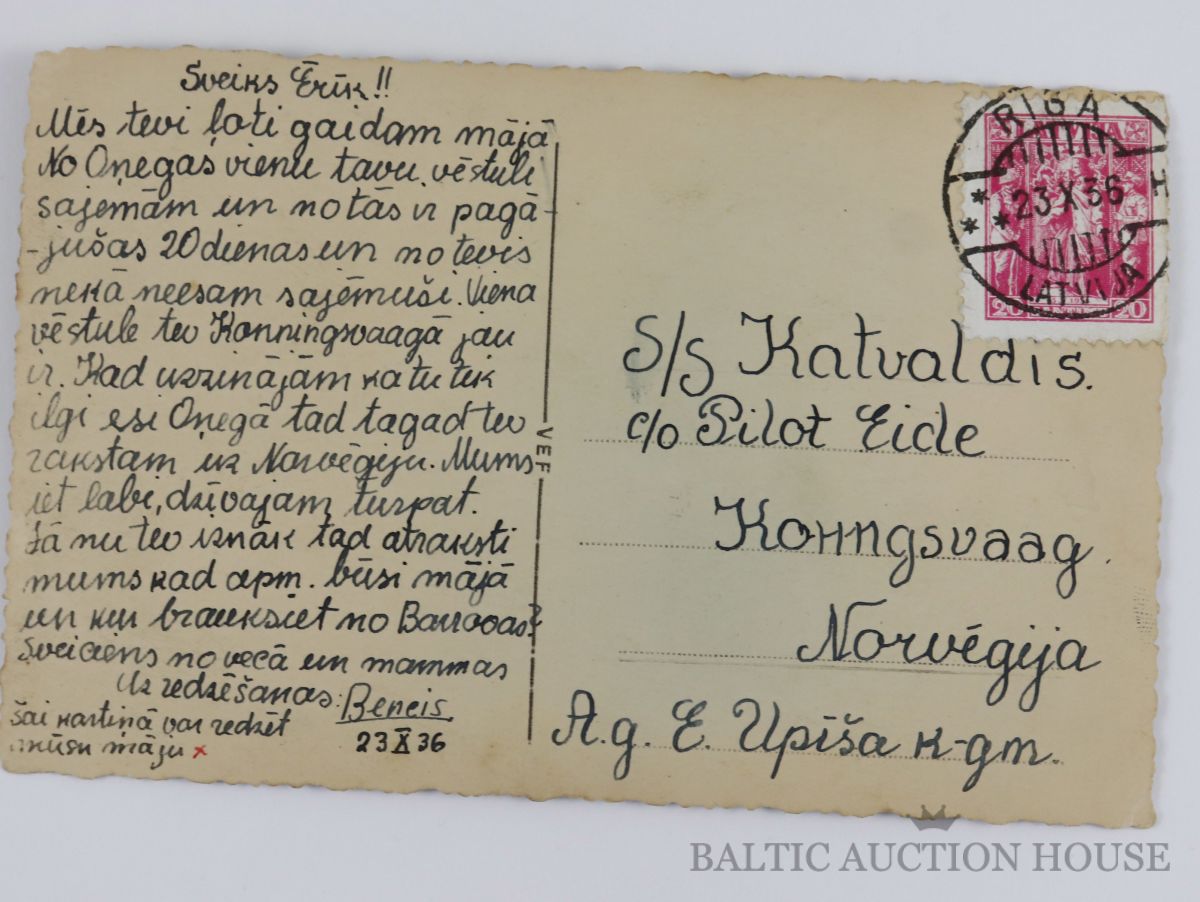 Sveiks Ērik!!
Mēs tevi ļoti gaidam mājā
No Oņegas vienu tavu vēstuli
saņemām un no tās ir pagā-
-jušas 20 dienas un no tevis
nekā neesam saņēmuši. Viena
vēstule tev Konningsvaagā jau
ir. Kad uzzinājām ka tu tik
ilgi esi Oņegā tad tagad tev
rakstam uz Norvēģiju. Mums
iet labi, dzīvojam turpat.
Jā nu tev iznāk tad atraksti
mums kad apm. būsi mājā
un kur brauksiet no
Sveiciens no vecā un mammas
Uz redzēšanos: Beneis
23 X 36
Šai kartiņā var redzēt
mūsu māju x
VEF
RĪGA
LATVIJA
23 X 36
I
LATVIJA
20 20
S/S Katvaldis.
c/o Pilot Eide
Konngsvaag.
Norvēģija
A.g. E. Upīša k-gm.
BALTIC AUCTION HOUSE